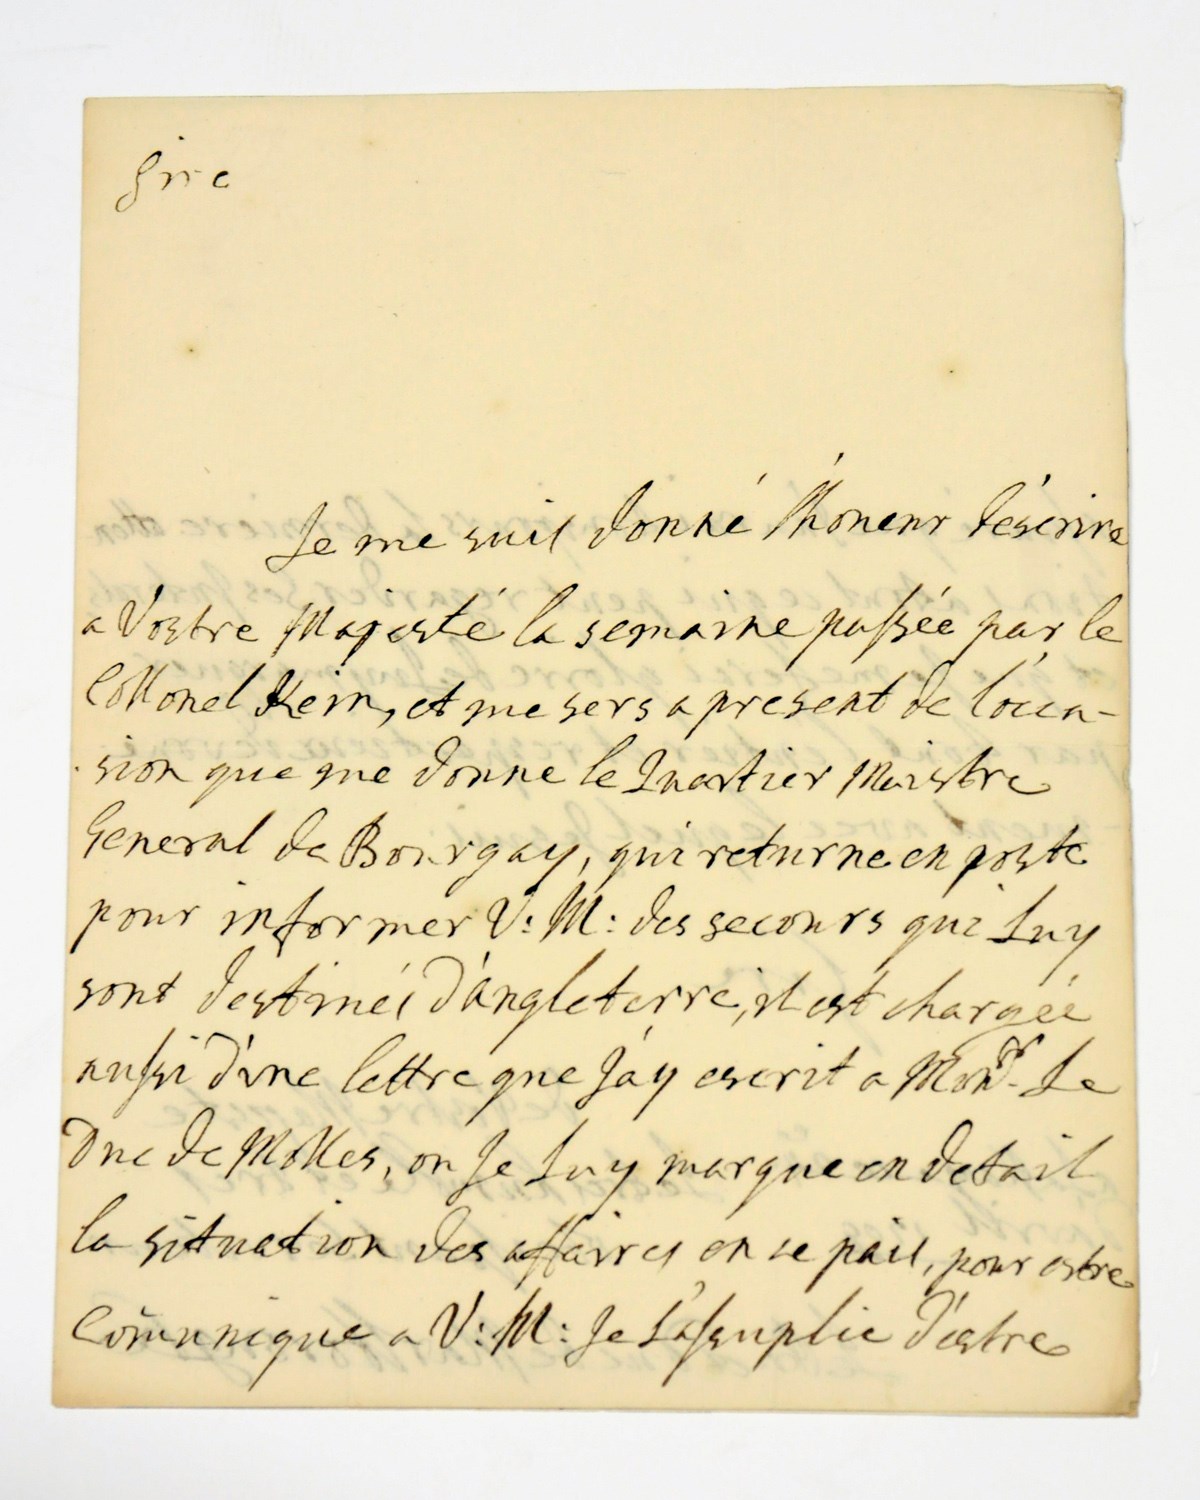 Sire
Je me suis donné l'honeur d'éscrire
a Vostre Majesté la semaine passée par le
Collonel Kein, et me sers a present de l'occa-
sion que me donne le Quartier Maistre
General de Bourgay, qui returne en poste
pour informer V: M: des secours qui Luy
sont destinés d'Angleterre, il est chargée
aussi d'vne lettre que J'ay escrit a Monsr. Le
Duc de Molles, ou Je Luy marque en detail
la situation des affaires en ce païs, pour estre
Com̄unique a V: M: Je La suplie d'estre